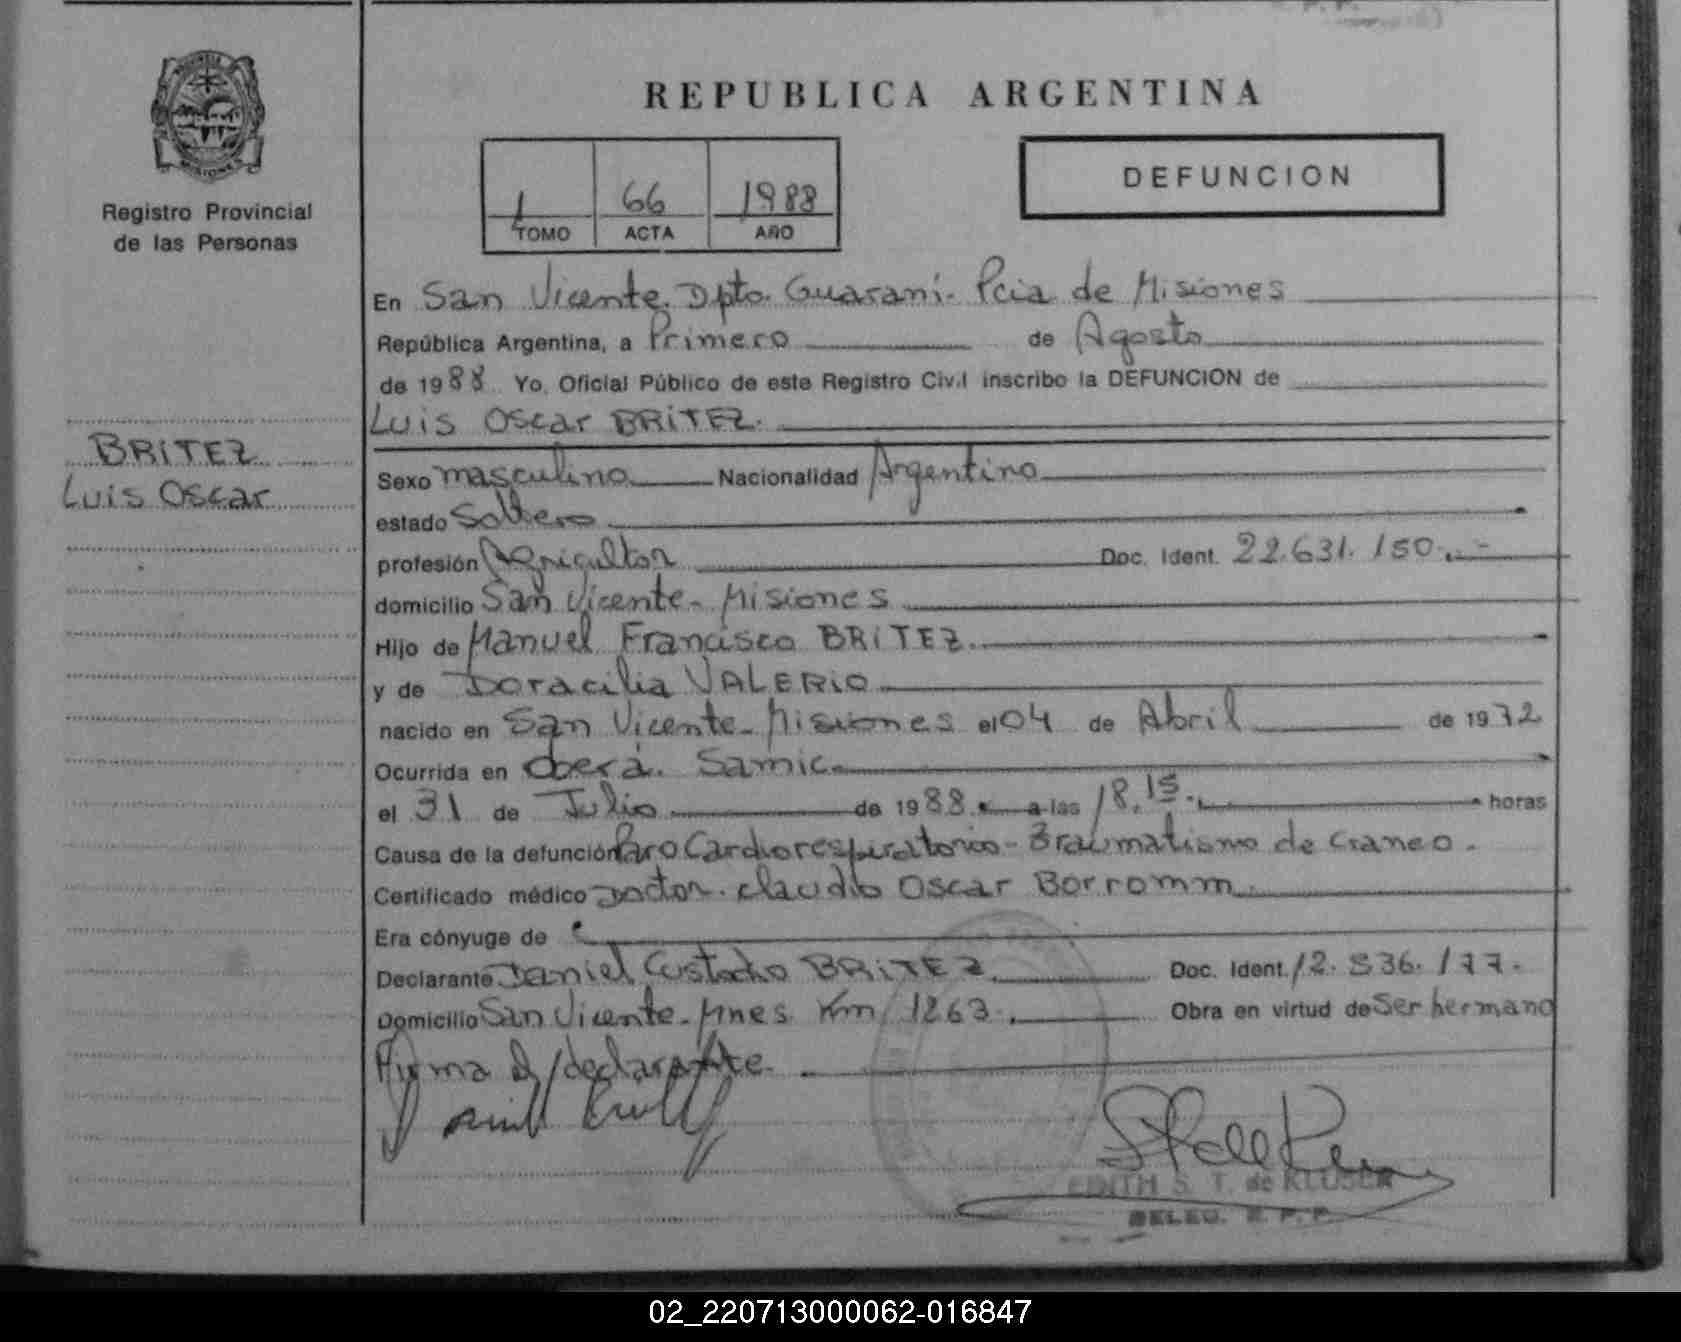 REPUBLICA ARGENTINA
MISIONES
Registro Provincial
de las Personas
1 66 1988
TOMO ACTA AÑO
DEFUNCION
En San Vicente. Dpto. Guaraní. Pcia de Misiones
República Argentina, a Primero de Agosto
de 1988 Yo, Oficial Público de este Registro Civil inscribo la DEFUNCION de
Luis Oscar BRITEZ.
BRITEZ
Luis Oscar
Sexo masculino Nacionalidad Argentino
estado Soltero
profesión Agricultor Doc. Ident. 22.631.150.-
domicilio San Vicente - Misiones
Hijo de Manuel Francisco BRITEZ.
y de Doracilia VALERIO
nacido en San Vicente - Misiones el 04 de Abril de 1972
Ocurrida en Oberá. Samic.
el 31 de Julio de 1988. a las 18.15. horas
Causa de la defunción Paro Cardiorespiratorio - Traumatismo de Craneo.
Certificado médico Doctor. Claudio Oscar Borromm.
Era cónyuge de
Declarante Daniel Custodio BRITEZ Doc. Ident. 12.536.177.
Domicilio San Vicente - Mnes Km 1263. Obra en virtud de Ser hermano
Firma d/declarante.
EDITH S. T. de KLUSER
DELEG. R. P. P.
02_220713000062-016847